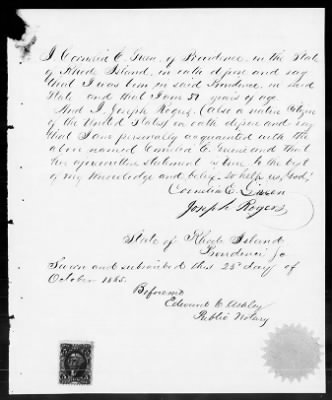 I Cornelia E. Green, of Providence, in the State
of Rhode Island, on oath depose and say
that I was born in said Providence, in said
State and that I am 51 years of age
And I Joseph Rogers (also a native Citizen
of the United States) on oath depose and say
that I am personally acquainted with the
above named Cornelia E. Green and that
her aforewritten statement is true, to the best
of my knowledge and belief. So help us, God.
Cornelia E. Green
Joseph Rogers
State of Rhode Island
Providence Sc
Sworn and subscribed this 25th day of
October 1865.
Before me
Edward C. Ashley
Public Notary